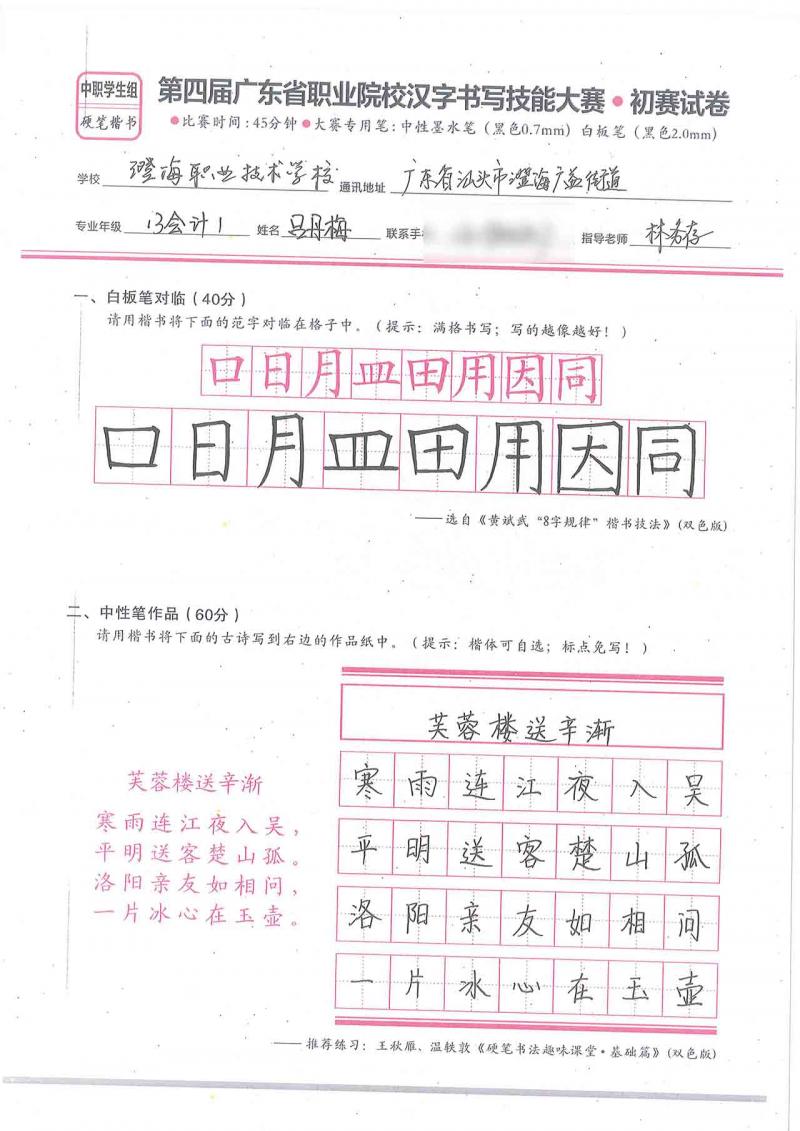 中职学生组
硬笔楷书
第四届广东省职业院校汉字书写技能大赛●初赛试卷
●比赛时间:45分钟●大赛专用笔:中性墨水笔(黑色0.7mm)白板笔(黑色2.0mm)
学校 澄海职业技术学校 通讯地址 广东省汕头市澄海广益街道
专业年级 13会计1 姓名 吕丹梅 联系手 指导老师 林
一、白板笔对临(40分)
请用楷书将下面的范字对临在格子中。(提示:满格书写;写的越像越好!)
口日月皿田用因同
口日月皿田用因同
——选自《黄斌武“8字规律”楷书技法》(双色版)
二、中性笔作品(60分)
请用楷书将下面的古诗写到右边的作品纸中。(提示:楷体可自选;标点免写!)
芙蓉楼送辛渐
寒雨连江夜入吴,
平明送客楚山孤。
洛阳亲友如相问,
一片冰心在玉壶。
芙蓉楼送辛渐
寒雨连江夜入吴
平明送客楚山孤
洛阳亲友如相问
一片冰心在玉壶
——推荐练习:王秋雁、温轶敦《硬笔书法趣味课堂·基础篇》(双色版)